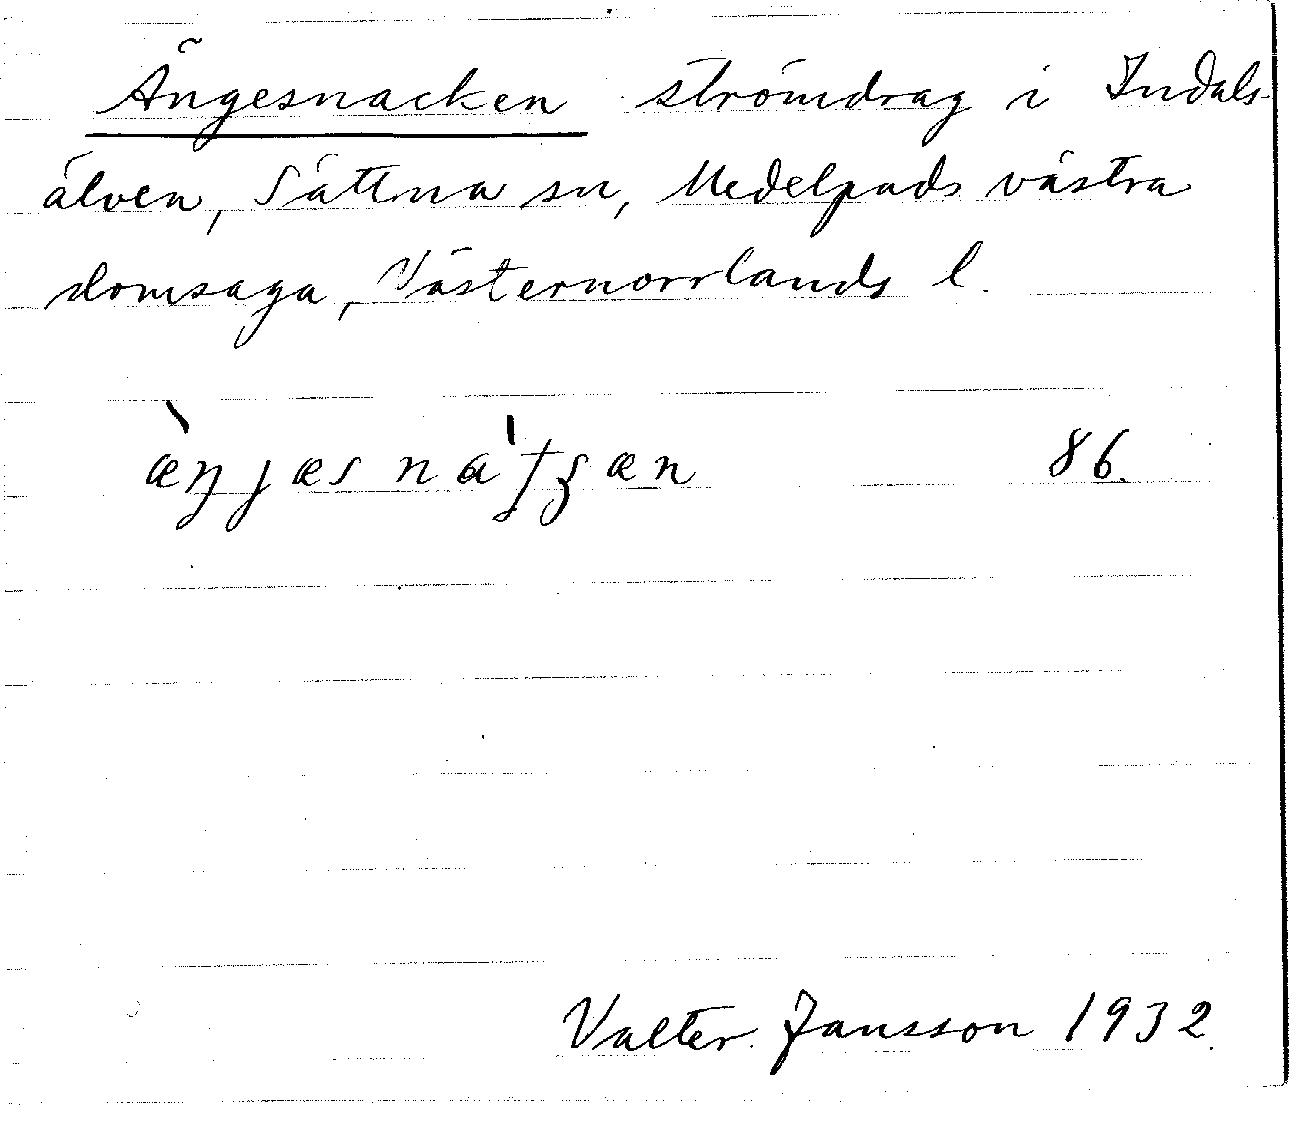 Ängesnacken strömdrag i Indals-
älven, Sättna sn, Medelpads västra
domsaga, Västernorrlands l.
æ̀ŋjæsnaˈtʃæn 86.
Valter Jansson 1932.